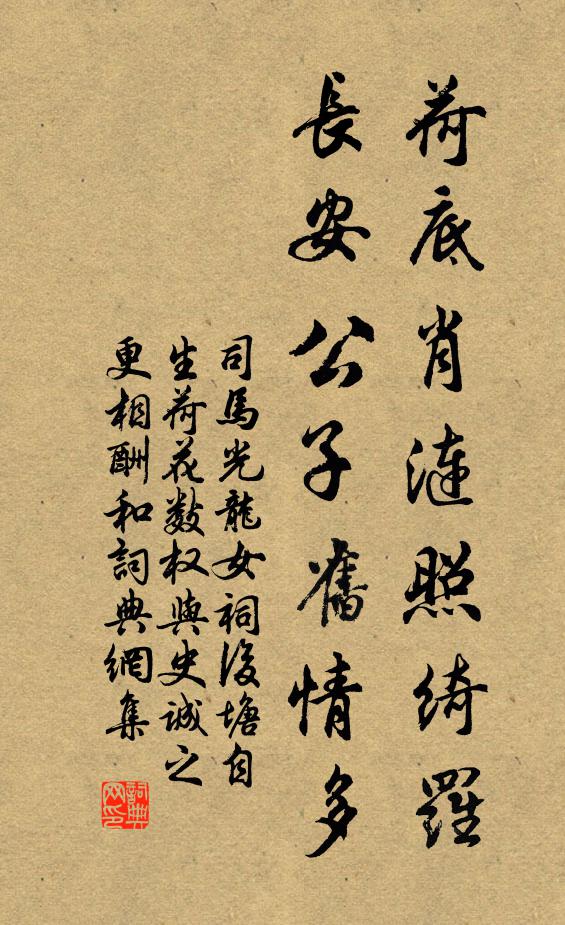 荷底肖漣照綺羅
長安公子舊情多
司馬光龍女祠後塘自
生荷花數枝與史誠之
更相酬和詞典網集
詞典
网印